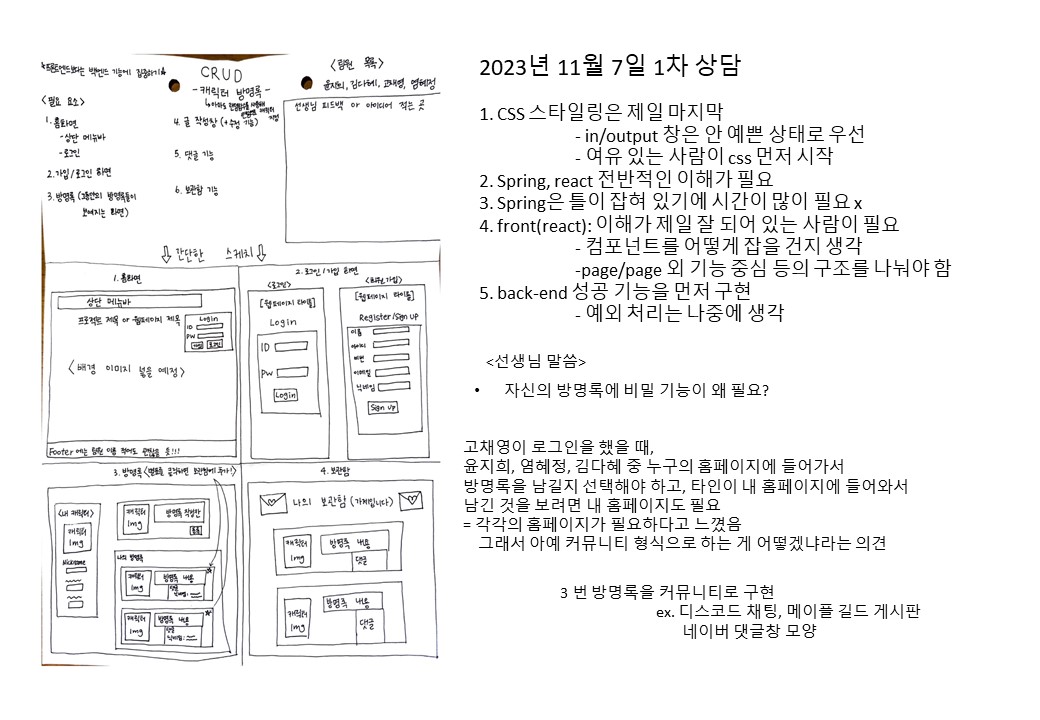 *프론트엔드보다는 백엔드 기능에 집중하기*
CRUD
-캐릭터 방명록-
<팀원 목록>
윤지희, 김다혜, 고채영, 염혜정
<필요 요소>
1. 홈화면
-상단 메뉴바
-로그인
2. 가입/로그인 화면
3. 방명록 (그동안의 방명록들이
보여지는 화면)
4. 글 작성창 (+수정 기능)
5. 댓글 기능
6. 보관함 기능
선생님 피드백 or 아이디어 적는 곳
⇩ 간단한 스케치 ⇩
1. 홈화면
상단 메뉴바
프로젝트 제목 or 웹페이지 제목
Login
ID
PW
<배경 이미지 넣을 예정>
Footer에는 팀원 이름 적어도 괜찮을 듯!!!
2. 로그인/가입 화면
<로그인>
[웹페이지 타이틀]
Login
ID
PW
Login
<회원가입>
[웹페이지 타이틀]
Register/Sign up
이름
아이디
비번
이메일
닉네임
Sign up
3. 방명록
<내 캐릭터>
캐릭터
Img
Nickname
캐릭터
Img
방명록 작성란
등록
나의 방명록
캐릭터
Img
방명록 내용
댓글
캐릭터
Img
방명록 내용
댓글
4. 보관함
나의 보관함
캐릭터
Img
방명록 내용
댓글
캐릭터
Img
방명록 내용
댓글
2023년 11월 7일 1차 상담
1. CSS 스타일링은 제일 마지막
- in/output 창은 안 예쁜 상태로 우선
- 여유 있는 사람이 css 먼저 시작
2. Spring, react 전반적인 이해가 필요
3. Spring은 틀이 잡혀 있기에 시간이 많이 필요 x
4. front(react): 이해가 제일 잘 되어 있는 사람이 필요
- 컴포넌트를 어떻게 잡을 건지 생각
-page/page 외 기능 중심 등의 구조를 나눠야 함
5. back-end 성공 기능을 먼저 구현
- 예외 처리는 나중에 생각
<선생님 말씀>
• 자신의 방명록에 비밀 기능이 왜 필요?
고채영이 로그인을 했을 때,
윤지희, 염혜정, 김다혜 중 누구의 홈페이지에 들어가서
방명록을 남길지 선택해야 하고, 타인이 내 홈페이지에 들어와서
남긴 것을 보려면 내 홈페이지도 필요
= 각각의 홈페이지가 필요하다고 느꼈음
그래서 아예 커뮤니티 형식으로 하는 게 어떻겠냐라는 의견
3 번 방명록을 커뮤니티로 구현
ex. 디스코드 채팅, 메이플 길드 게시판
네이버 댓글창 모양